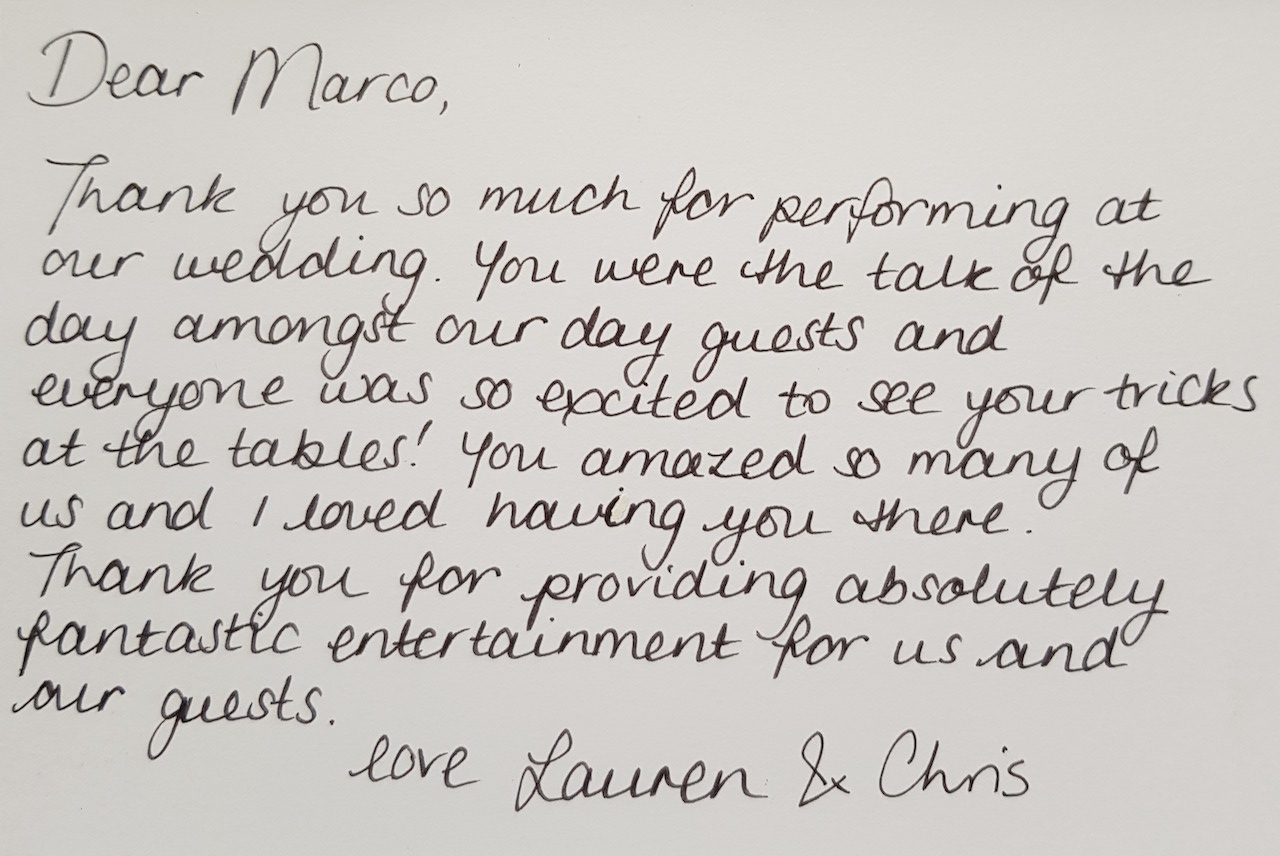 Dear Marco,
Thank you so much for performing at
our wedding. You were the talk of the
day amongst our day guests and
everyone was so excited to see your tricks
at the tables! You amazed so many of
us and I loved having you there.
Thank you for providing absolutely
fantastic entertainment for us and
our guests.
love Lauren & Chris